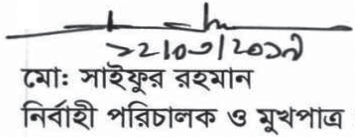 ১২/০৩/২০১৭
মোঃ সাইফুর রহমান
নির্বাহী পরিচালক ও মুখপাত্র